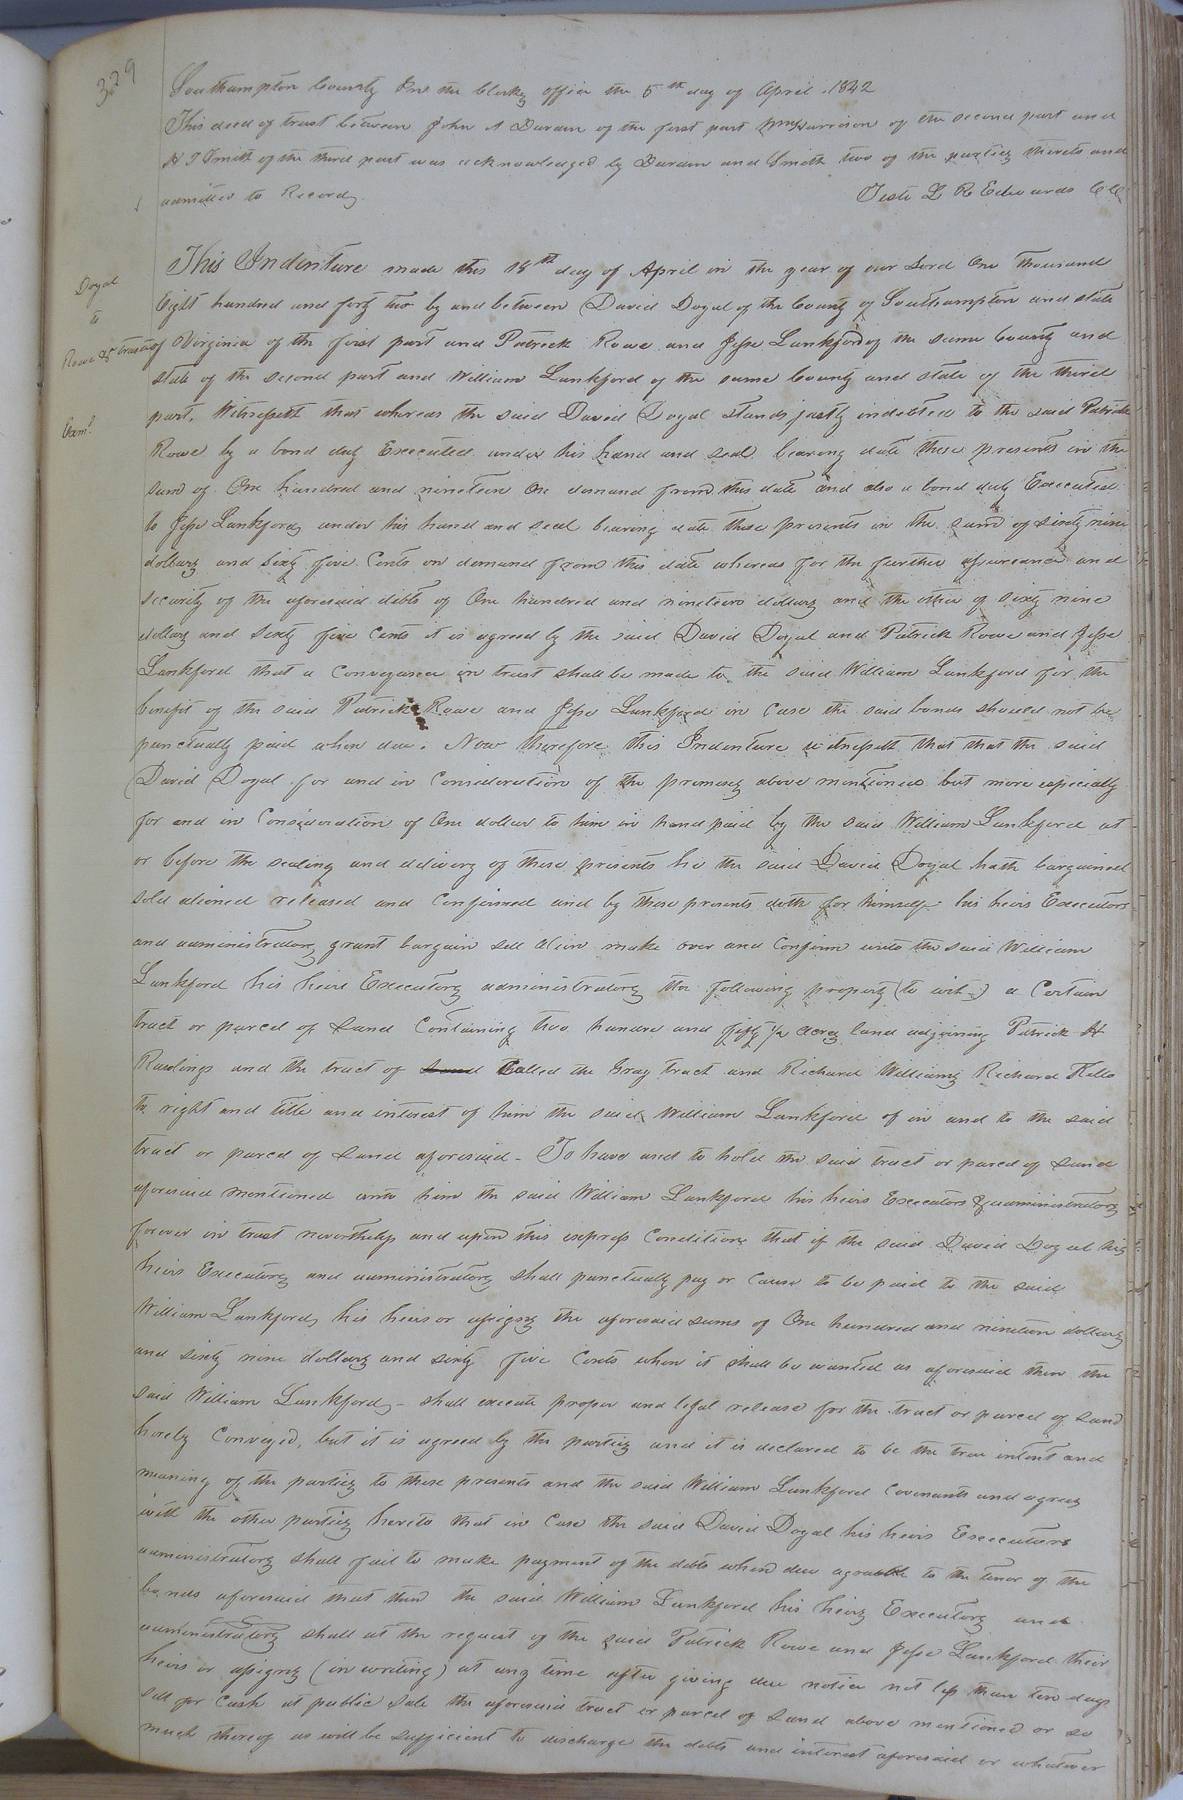 329
Southampton County In the Clerks office the 5th day of April 1842
This deed of trust between John A Darden of the first part Harrison of the second part and
H T Smith of the third part was acknowledged by Darden and Smith two of the parties thereto and
admitted to Record
Teste L R Edwards CC
Doyal
to
Rowe & trustee
Exmd
This Indenture made this 18th day of April in the year of our Lord One thousand
Eight hundred and forty two by and between David Doyal of the County of Southampton and state
of Virginia of the first part and Patrick Rowe and Jesse Lankford of the same County and
state of the second part and William Lankford of the same County and state of the third
part, Witnesseth that whereas the said David Doyal stands justly indebted to the said Patrick
Rowe by a bond duly Executed under his hand and seal bearing date these presents in the
sum of One hundred and nineteen on demand from this date and also a bond duly Executed
to Jesse Lankford under his hand and seal bearing date these presents in the sum of sixty nine
dollars and sixty five Cents on demand from this date whereas for the further assurance and
security of the aforesaid debts of One hundred and nineteen dollars and the other of sixty nine
dollars and sixty five Cents it is agreed by the said David Doyal and Patrick Rowe and Jesse
Lankford that a Conveyance in trust shall be made to the said William Lankford for the
benefit of the said Patrick Rowe and Jesse Lankford in Case the said bonds should not be
punctually paid when due. Now therefore this Indenture witnesseth that that the said
David Doyal for and in Consideration of the premises above mentioned but more especially
for and in Consideration of One dollar to him in hand paid by the said William Lankford at
or before the sealing and delivery of these presents he the said David Doyal hath bargained
sold aliened released and Confirmed and by these presents doth for himself his heirs Executors
and administrators grant bargain sell alien make over and Confirm unto the said William
Lankford his heirs Executors administrators the following property (to wit-) a Certain
tract or parcel of Land Containing two hundre and fifty 1/2 acres land adjoining Patrick H
Rawlings and the tract of Called the Gray tract and Richard Williams Richard Kello
the right and title and interest of him the said William Lankford of in and to the said
tract or parcel of Land aforesaid - To have and to hold the said tract or parcel of Land
aforesaid mentioned unto him the said William Lankford his heirs Executors & administrators
forever in trust nevertheless and upon this express Condition that if the said David Doyal his
heirs Executors and administrators shall punctually pay or Cause to be paid to the said
William Lankford his heirs or assigns the aforesaid sums of One hundred and nineteen dollars
and sixty nine dollars and sixty five Cents when it shall be wanted as aforesaid then the
said William Lankford - shall execute proper and legal release for the tract or parcel of Land
hereby Conveyed, but it is agreed by the parties and it is declared to be the true intent and
meaning of the parties to these presents and the said William Lankford Covenants and agrees
with the other parties hereto that in Case the said David Doyal his heirs Executors
administrators shall fail to make payment of the debts when due agreable to the tenor of the
bonds aforesaid that then the said William Lankford his heirs Executors and
administrators shall at the request of the said Patrick Rowe and Jesse Lankford their
heirs or assigns (in writing) at any time after giving due notice not less than ten days
sell for Cash at public Sale the aforesaid tract or parcel of Land above mentioned or so
much thereof as will be sufficient to discharge the debts and interest aforesaid or whatever